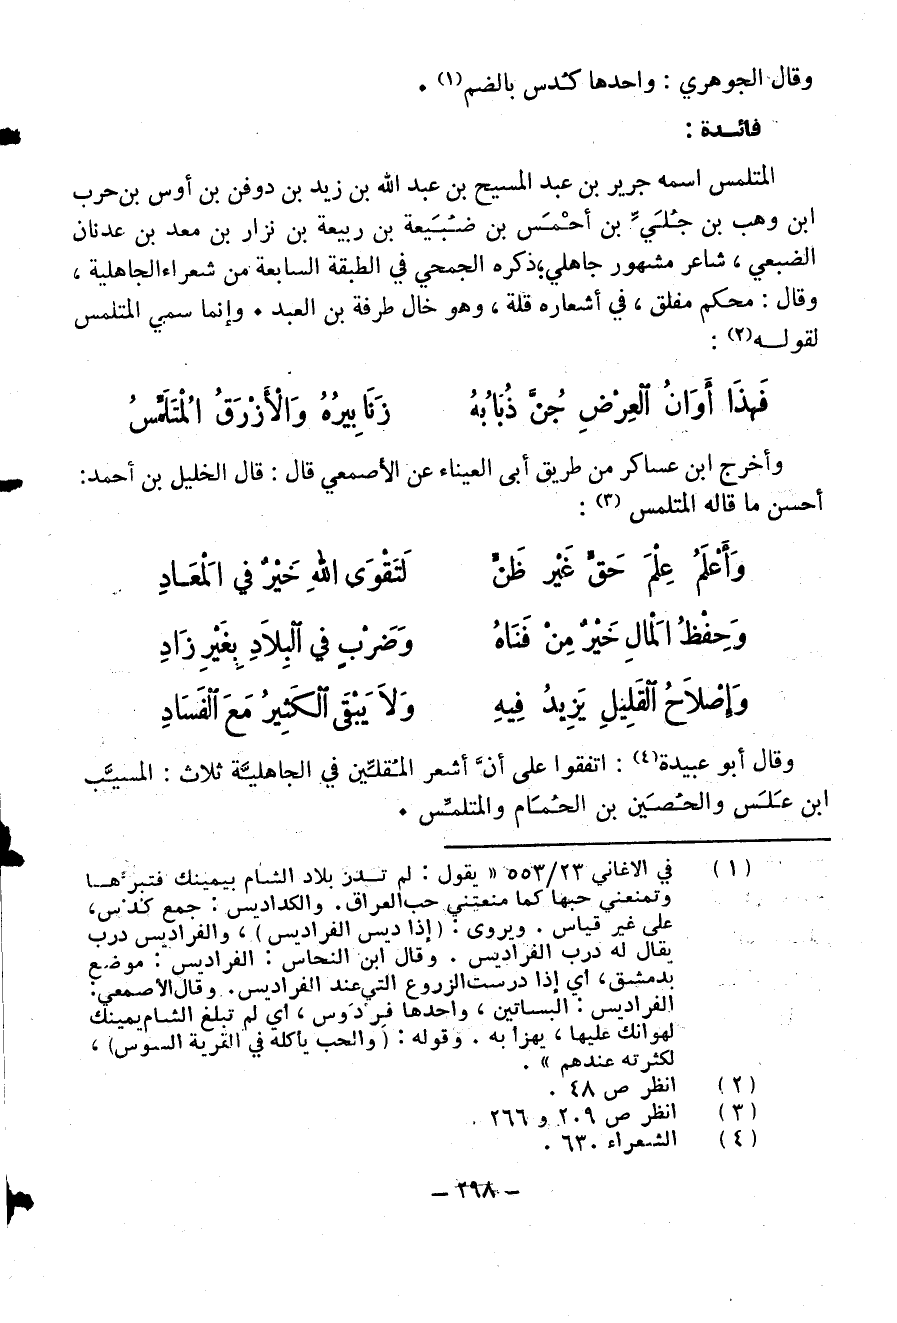 وقال الجوهري : واحدها كُدس بالضم(١) .
فائـدة :
المتلمس اسمه جرير بن عبد المسيح بن عبد الله بن زيد بن دوفن بن أوس بن حرب
ابن وهب بن جُلَيّ بن أحْمَس بن ضُبَيعة بن ربيعة بن نزار بن معد بن عدنان
الضبعي ، شاعر مشهور جاهلي ؛ ذكره الجمحي في الطبقة السابعة من شعراء الجاهلية ،
وقال : محكم مفلق ، في أشعاره قلة ، وهو خال طرفة بن العبد . وإنما سمي المتلمس
لقولـه(٢) :
فَهذَا أَوَانُ العِرْضِ جُنَّ ذُبَابُهُ زَنَابِيرُهُ وَالْأَزْرَقُ الْمُتَلَمِّسُ
وأخرج ابن عساكر من طريق أبى العيناء عن الأصمعي قال : قال الخليل بن أحمد:
أحسن ما قاله المتلمس (٣) :
وَأَعْلَمُ عِلْمَ حَقٍّ غَيْر ظَنٍّ لَتَقْوَى اللهِ خَيْرٌ في الْمَعَـادِ
وَحِفْظُ الْمَالِ خَيْرٌ مِنْ فَنَاهُ وَضَرْبٍ في البِلَادِ بِغَيْرِ زَادِ
وَإِصْلَاحُ القَلِيلِ يَزِيدُ فِيهِ وَلاَ يَبْقَى الكَثِيرُ مَعَ الفَسَادِ
وقال أبو عبيدة(٤) : اتفقوا على أنّ أشعر المُقلّين في الجاهليّة ثلاث : المسيَّب
ابن عَلَس والحُصَين بن الحُمَام والمتلمِّس .
(١) في الاغاني ٥٥٣/٢٣ « يقول : لم تـدر بلاد الشام بيمينك فتبرّهـا
وتمنعني حبها كما منعتني حب العراق. والكداديس : جمع كدس،
على غير قياس . ويروى : (إذا ديس الفراديس) ، والفراديس درب
يقال له درب الفراديس . وقال ابن النحاس : الفراديس : موضع
بدمشق، أي إذا درست الزروع التي عند الفراديس. وقال الأصمعي:
الفراديس : البساتين ، واحدها فردوس ، أي لم تبلغ الشام يمينك
لهوانك عليها ، يهزأ به . وقوله : (والحب يأكله في القرية السوس) ،
لكثرته عندهم » .
(٢) انظر ص ٤٨ .
(٣) انظر ص ٢٠٩ و ٢٦٦ .
(٤) الشعراء ٦٣٠ .
– ٢٩٨ –